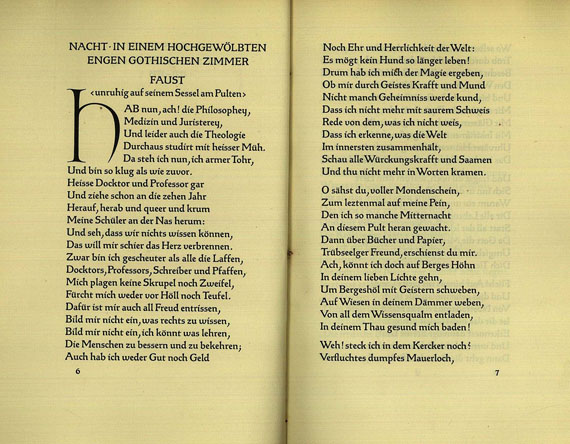 NACHT·IN EINEM HOCHGEWÖLBTEN
ENGEN GOTHISCHEN ZIMMER
FAUST
‹unruhig auf seinem Sessel am Pulten›
HAB nun, ach! die Philosophey,
Medizin und Juristerey,
Und leider auch die Theologie
Durchaus studirt mit heisser Müh.
Da steh ich nun, ich armer Tohr,
Und bin so klug als wie zuvor.
Heisse Docktor und Professor gar
Und ziehe schon an die zehen Jahr
Herauf, herab und queer und krum
Meine Schüler an der Nas herum:
Und seh, dass wir nichts wissen können,
Das will mir schier das Herz verbrennen.
Zwar bin ich gescheuter als alle die Laffen,
Docktors, Professors, Schreiber und Pfaffen,
Mich plagen keine Skrupel noch Zweifel,
Fürcht mich weder vor Höll noch Teufel.
Dafür ist mir auch all Freud entrissen,
Bild mir nicht ein, was rechts zu wissen,
Bild mir nicht ein, ich könnt was lehren,
Die Menschen zu bessern und zu bekehren;
Auch hab ich weder Gut noch Geld
6
Noch Ehr und Herrlichkeit der Welt:
Es mögt kein Hund so länger leben!
Drum hab ich mich der Magie ergeben,
Ob mir durch Geistes Krafft und Mund
Nicht manch Geheimniss werde kund,
Dass ich nicht mehr mit saurem Schweis
Rede von dem, was ich nicht weis,
Dass ich erkenne, was die Welt
Im innersten zusammenhält,
Schau alle Würckungskrafft und Saamen
Und thu nicht mehr in Worten kramen.
O sähst du, voller Mondenschein,
Zum leztenmal auf meine Pein,
Den ich so manche Mitternacht
An diesem Pult heran gewacht.
Dann über Bücher und Papier,
Trübseelger Freund, erschienst du mir.
Ach, könnt ich doch auf Berges Höhn
In deinem lieben Lichte gehn,
Um Bergeshöl mit Geistern schweben,
Auf Wiesen in deinem Dämmer weben,
Von all dem Wissensqualm entladen,
In deinem Thau gesund mich baden!
Weh! steck ich in dem Kercker noch?
Verfluchtes dumpfes Mauerloch,
7